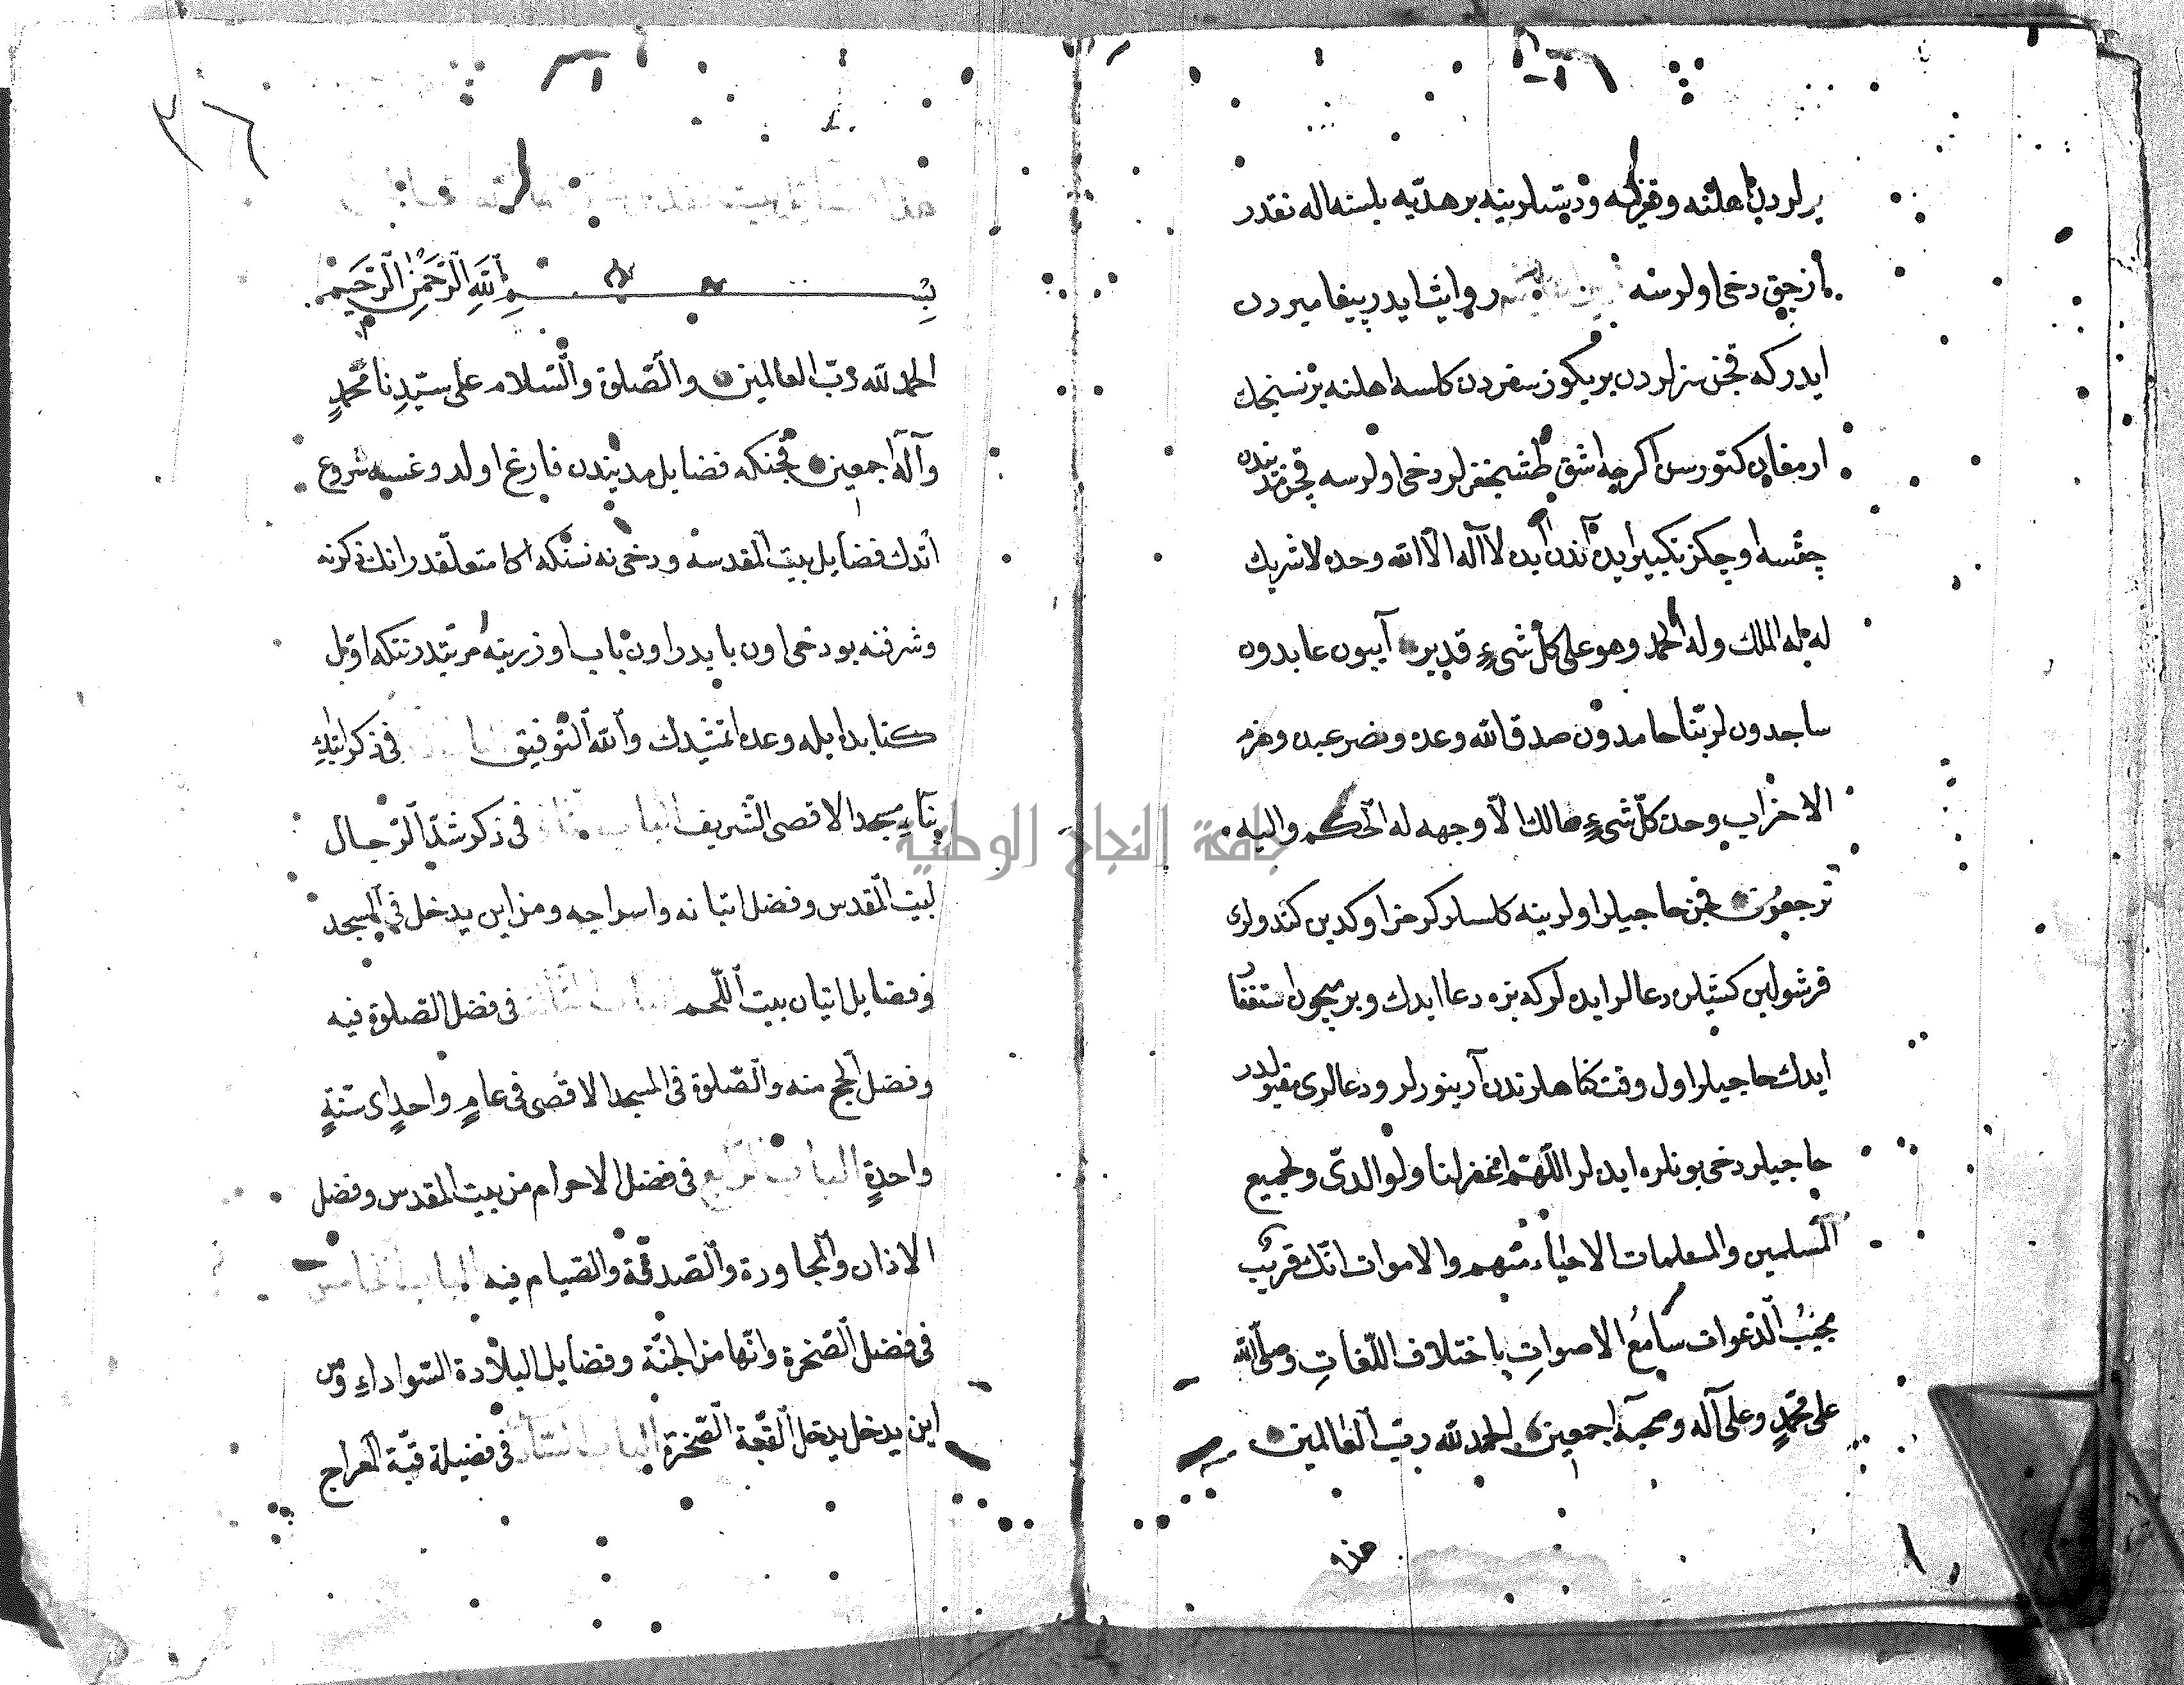 برلردن اهلنه وقزلرينه ودستلرينه بر هديه يلسنه اله نقدر
ازجق دخى اولرسه روايت ايدر پيغامبردن
ايدر كه قچن سزلردن بريكوز سفردن كلسه اهلنه بر نسنجك
ارمغان كتورسن اكرچه اشق طشجغزلر دخى اولرسه قچن
چقسه اوچ كز تكبير ايده آندن ايده لا اله الا الله وحده لا شريك
له له الملك وله الحمد وهو على كل شىء قدير آيبون عابدون
ساجدون لربنا حامدون صدق الله وعده ونصر عبده وهزم
الاحزاب وحده كل شىء هالك الا وجهه له الحكم واليه
ترجعون قچن حاجيلر اولرينه كلسلر كركمز اوكدين كندولرى
قرشولين كشيلره دعالر ايده لر كه بزه دعا ايدك وبزمچون استغفا
ايدك حاجيلر اول وقت كناهلرندن آرينورلر ودعالرى مقبولدر
حاجيلر دخى بونلره ايده لر اللهم اغفر لنا ولوالدى ولجميع
المسلمين والمسلمات الاحياء منهم والاموات انك قريب
مجيب الدعوات سامع الاصوات باختلاف اللغات وصلى الله
على محمد وعلى آله وصحبه اجمعين والحمد لله رب العالمين
٣٦
بسم الله الرحمن الرحيم
الحمد لله رب العالمين والصلوة والسلام على سيدنا محمد
وآله اجمعين قچنكه فضايل مدينه‌دن فارغ اولدوغسه شروع
اتدك فضايل بيت المقدسه ودخى نه نسنكه اكا متعلقدر انك ذكرنه
وشرفنه بو دخى اون بابدر اون باب اوزرينه مرتبدر نتكه اول
كتابده ايله وعده اتمشدك والله التوفيق فى ذكر ابتداء
بناء مسجد الاقصى الشريف الباب فى ذكر شد الرحال
لبيت المقدس وفضل اتيانه واسراجه ومن اين يدخل فى المسجد
وفضايل اتيان بيت اللحم الباب الثالث فى فضل الصلوة فيه
وفضل الحج منه والصلوة فى المسجد الاقصى فى عام واحد اى سنة
واحدة الباب الرابع فى فضل الاحرام من بيت المقدس وفضل
الاذان والمجاورة والصدقة والصيام فيه الباب الخامس
فى فضل الصخرة وانها من الجنة وفضايل البلادة السواداء ومن
اين يدخل يدخل القبة الصخرة الباب السادس فى فضيلة قبة المعراج
جامعة النجاح الوطنية